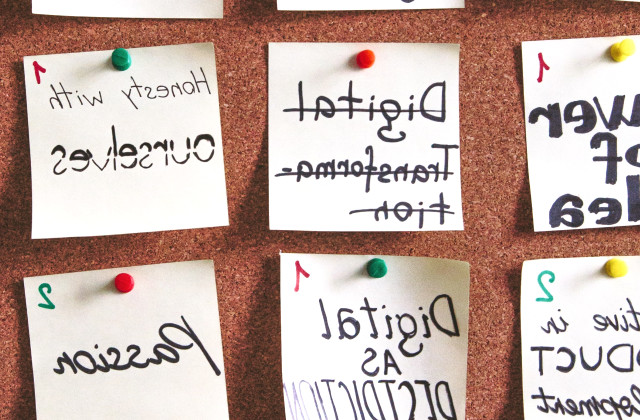 1
Honesty with
ourselves
Digital
Transforma-
tion
1
wer
of
2
Passion
1
Digital
AS
2
tive in
DUCT
opment